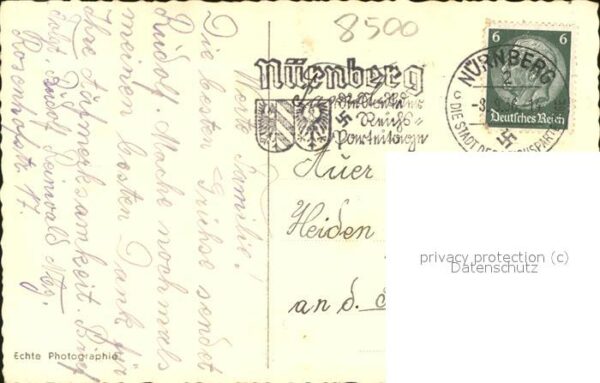 8500
Nürnberg
die Stadt der
Reichs-
Parteitage
NÜRNBERG
2
DIE STADT DER REICHSPART
6 6
Deutsches Reich
Werte Familie!
Die besten Grüße sendet
Rudolf. Mache nochmals
meinen besten Dank für
Ihre Aufmerksamkeit.
Rudolf Reinwald Nbg.
17.
Auer
Heiden
an d.
privacy protection (c)
Datenschutz
Echte Photographie